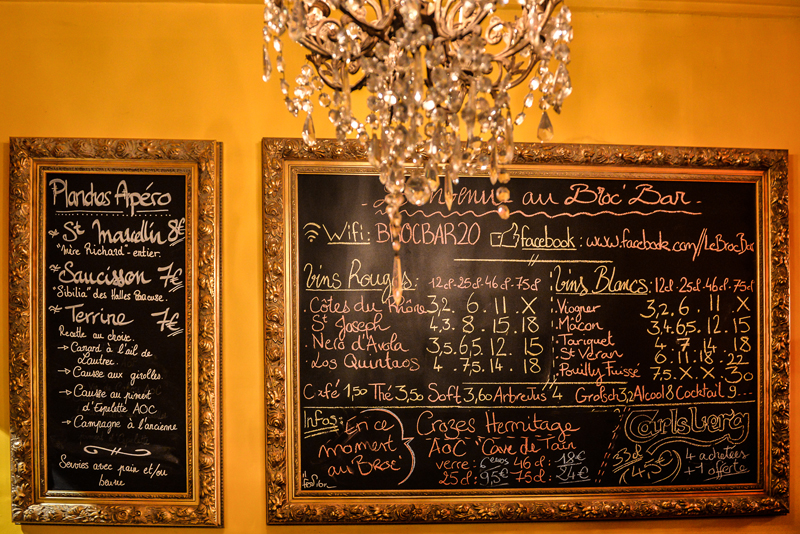 Planches Apéro
St Marcellin 8€
"Mère Richard" - entier.
Saucisson 7€
"Sibilia" des Halles
Terrine 7€
Recette au choix.
→ Canard à l'ail de
Lautrec
→ Causse aux girolles.
→ Causse au piment
d'Espelette AOC
→ Campagne à l'ancienne
Servies avec pain et/ou
beurre
au Broc'Bar
Wifi: BROCBAR20 facebook: www.facebook.com//LeBrocBar
Vins Rouges: 12cl-25cl-46cl-75cl
Côtes du Rhône 3,2. 6 . 11 . X
St Joseph 4,3. 8 . 15 . 18
Nero d'Avola 3,5.6,5.12 . 15
Los Quintaos 4 . 7,5. 14 . 18
Vins Blancs: 12cl-25cl-46cl-75cl
Viogner 3,2. 6 . 11 . X
Macon 3,4.6,5. 12 . 15
Tariquet 4 . 7 . 14 . 18
St Veran 6 . 11 . 18 . 22
Pouilly Fuissé 7,5. X . X . 30
Café 1,50 Thé 3,50 Soft 3,60 Arbre Jus 4 Grolsch 3,2 Alcool 8 Cocktail 9
Infos:
En ce
moment
au Broc'
Crozes Hermitage
AOC "Cave de Tain"
verre: 6 euros 46cl: 18€
25cl: 9,5€ 75cl: 24€
Carlsberg
33cl
4,5€
4 achetées
+ 1 offerte